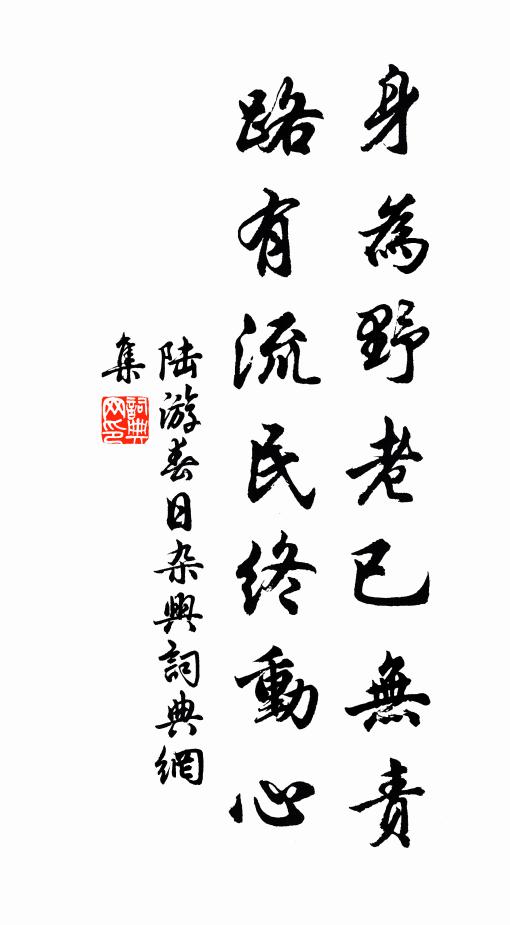 身為野老已無責
路有流民終動心
陸游春日杂興詞典網
集
詞典
网印